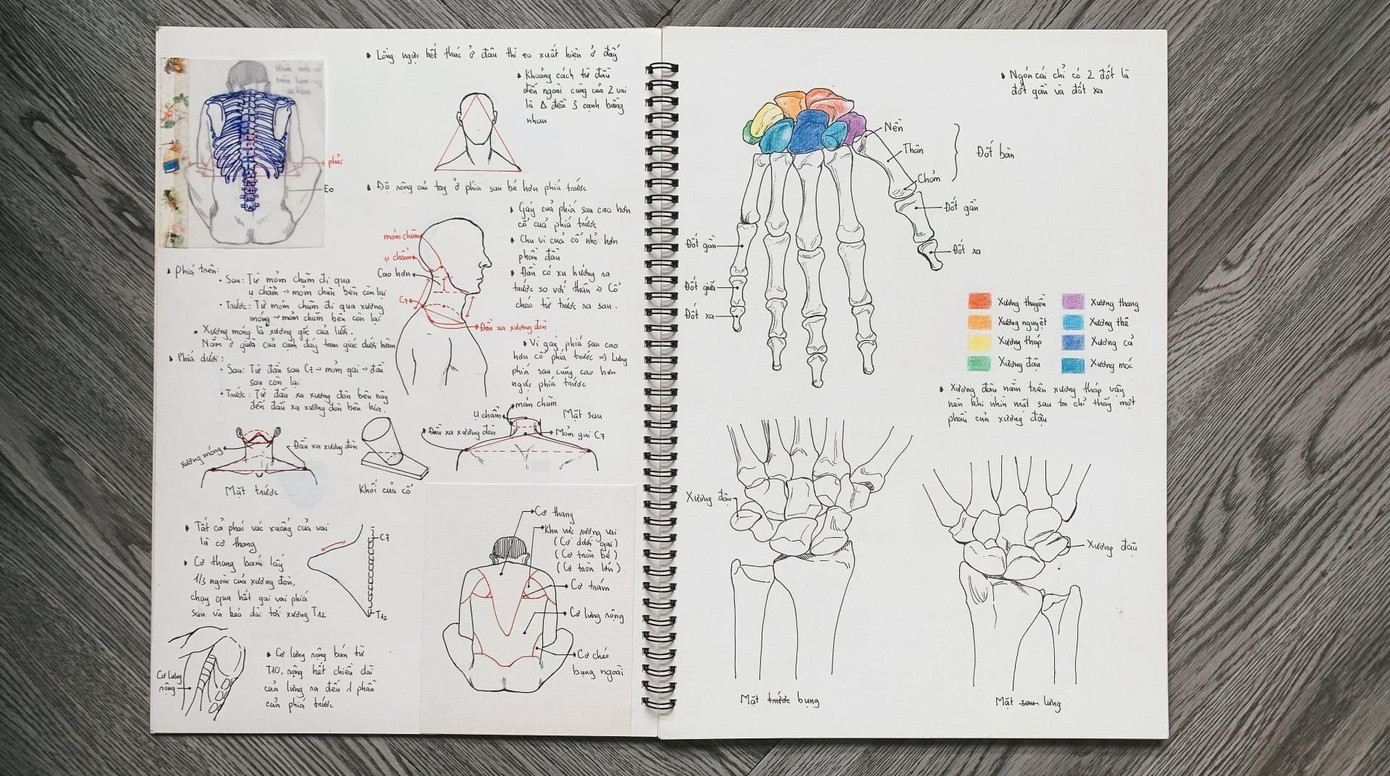 • Lồng ngực kết thúc ở đâu thì eo xuất hiện ở đấy
• Khoảng cách từ đầu
đến ngoài cùng của 2 vai
là Δ đều 3 cạnh bằng
nhau
phải
Eo
• Độ rộng của tay ở phía sau bé hơn phía trước
• Gáy của phía sau cao hơn
cổ của phía trước
• Chu vi của cổ nhỏ hơn
phần đầu
• Đầu có xu hướng ra
trước so với thân ⇒ Cổ
chéo từ trước ra sau.
mỏm chũm
ụ chẩm
Cao hơn
C7
Đầu xa xương đòn
• Vì gáy phía sau cao
hơn cổ phía trước ⇒ Lưng
phía sau cũng cao hơn
ngực phía trước
• Phía trên:
• Sau: Từ mỏm chũm đi qua
ụ chẩm → mỏm chũm bên còn lại
• Trước: Từ mỏm chũm đi qua xương
móng → mỏm chũm bên còn lại
• Xương móng là xương gốc của lưỡi.
Nằm ở giữa của cạnh đáy tam giác dưới hàm
• Phía dưới:
• Sau: Từ đầu sau C7 → mỏm gai → đầu
sau còn lại
• Trước: Từ đầu xa xương đòn bên này
đến đầu xa xương đòn bên kia.
xương móng
Đầu xa xương đòn
Mặt trước
Khối của cổ
mỏm chũm
ụ chẩm
Mặt sau
Đầu xa xương đòn
Mỏm gai C7
• Tất cả phải vác xuống của vai
là cơ thang
• Cơ thang bám lấy
1/3 ngoài của xương đòn,
chạy qua hết gai vai phía
sau và kéo dài tới xương T12
C7
T12
Cơ lưng
rộng
• Cơ lưng rộng bám từ
T10, rộng hết chiều dài
của lưng ra đến 1 phần
của phía trước
Cơ thang
Khu vực xương vai
(Cơ dưới gai)
(Cơ tròn bé)
(Cơ tròn lớn)
Cơ trám
Cơ lưng rộng
Cơ chéo
bụng ngoài
• Ngón cái chỉ có 2 đốt là
đốt gần và đốt xa
Nền
Thân
Chỏm
Đốt bàn
Đốt gần
Đốt xa
Đốt gần
Đốt giữa
Đốt xa
Xương thuyền
Xương thang
Xương nguyệt
Xương thê
Xương tháp
Xương cả
Xương đậu
Xương móc
• Xương đậu nằm trên xương tháp vậy
nên khi nhìn mặt sau ta chỉ thấy một
phần của xương đậu
Xương đậu
Xương đậu
Mặt trước bụng
Mặt sau lưng